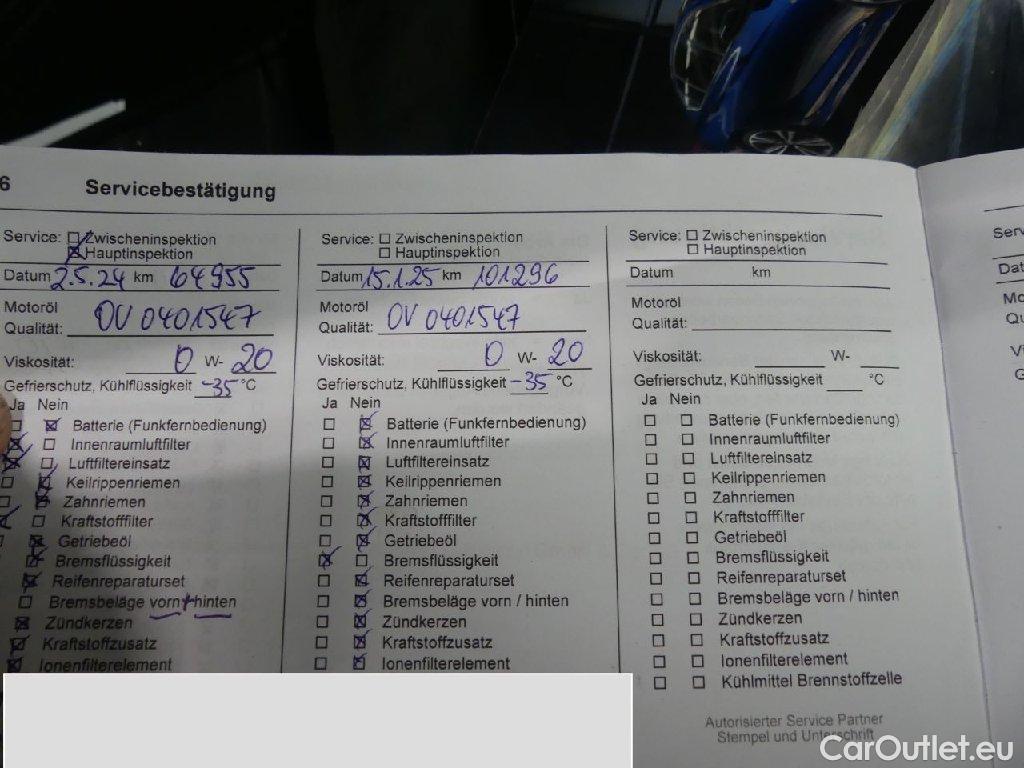 6 Servicebestätigung
Service: Zwischeninspektion
Hauptinspektion
Datum 2.5.24 km 64955
Motoröl
Qualität: OV 0401547
Viskosität: 0 W- 20
Gefrierschutz, Kühlflüssigkeit -35 °C
Ja Nein
Batterie (Funkfernbedienung)
Innenraumluftfilter
Luftfiltereinsatz
Keilrippenriemen
Zahnriemen
Kraftstofffilter
Getriebeöl
Bremsflüssigkeit
Reifenreparaturset
Bremsbeläge vorn / hinten
Zündkerzen
Kraftstoffzusatz
Ionenfilterelement
Service: Zwischeninspektion
Hauptinspektion
Datum 15.1.25 km 101296
Motoröl
Qualität: OV 0401547
Viskosität: 0 W- 20
Gefrierschutz, Kühlflüssigkeit -35 °C
Ja Nein
Batterie (Funkfernbedienung)
Innenraumluftfilter
Luftfiltereinsatz
Keilrippenriemen
Zahnriemen
Kraftstofffilter
Getriebeöl
Bremsflüssigkeit
Reifenreparaturset
Bremsbeläge vorn / hinten
Zündkerzen
Kraftstoffzusatz
Ionenfilterelement
Service: Zwischeninspektion
Hauptinspektion
Datum km
Motoröl
Qualität:
Viskosität: W-
Gefrierschutz, Kühlflüssigkeit °C
Ja Nein
Batterie (Funkfernbedienung)
Innenraumluftfilter
Luftfiltereinsatz
Keilrippenriemen
Zahnriemen
Kraftstofffilter
Getriebeöl
Bremsflüssigkeit
Reifenreparaturset
Bremsbeläge vorn / hinten
Zündkerzen
Kraftstoffzusatz
Ionenfilterelement
Kühlmittel Brennstoffzelle
Autorisierter Service Partner
Stempel und Unterschrift
CarOutlet.eu